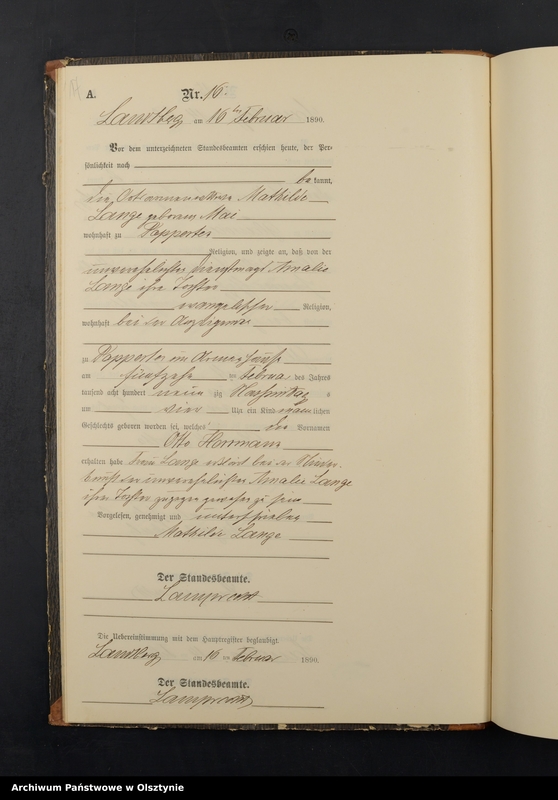 A.
Nr. 16.
Landsberg am 16ten Februar 1890.
Vor dem unterzeichneten Standesbeamten erschien heute, der Per-
sönlichkeit nach
be kannt,
die Mathilde
Lange geborene Mai
wohnhaft zu Papperten
Religion, und zeigte an, daß von der
unverehelichten Dienstmagd Amalie
Lange ihre Tochter
evangelischer Religion,
wohnhaft bei der Anzeigerin
zu Papperten im Armenhause
am fünfzehn ten Februar des Jahres
tausend acht hundert neunzig Nachmittags
um vier Uhr ein Kind männlichen
Geschlechts geboren worden sei, welches die Vornamen
Otto Hermann
erhalten habe Frau Lange erklärt bei der Nieder-
kunft der unverehelichten Amalie Lange
ihrer Tochter zugegen gewesen zu sein
Vorgelesen, genehmigt und unterschrieben
Mathilde Lange
Der Standesbeamte.
Lamprecht
Die Uebereinstimmung mit dem Hauptregister beglaubigt.
Landsberg am 16 ten Februar 1890.
Der Standesbeamte.
Lamprecht
Archiwum Państwowe w Olsztynie